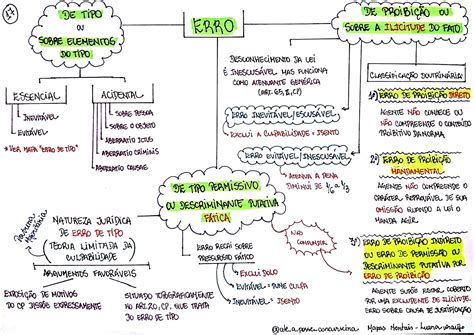 17
ERRO
DE TIPO
OU
SOBRE ELEMENTOS
DO TIPO
ESSENCIAL
INEVITÁVEL
EVITÁVEL
* VER MAPA "ERRO DE TIPO"
ACIDENTAL
SOBRE PESSOA
SOBRE O OBJETO
ABERRATIO ICTUS
ABERRATIO CRIMINIS
ABERRATIO CAUSAE
DE PROIBIÇÃO OU
SOBRE A ILICITUDE DO FATO
DESCONHECIMENTO DA LEI
É INESCUSÁVEL MAS FUNCIONA
COMO ATENUANTE GENÉRICA
(ART. 65, II, CP)
ERRO INEVITÁVEL/ESCUSÁVEL
EXCLUI A CULPABILIDADE - ISENTO
ERRO EVITÁVEL/INESCUSÁVEL
ATENUA A PENA
DIMINUI DE 1/6 A 1/3
CLASSIFICAÇÃO DOUTRINÁRIA
1º) ERRO DE PROIBIÇÃO DIRETO
AGENTE NÃO CONHECE OU
NÃO COMPREENDE O CONTEÚDO
PROIBITIVO DA NORMA
2º) ERRO DE PROIBIÇÃO
MANDAMENTAL
AGENTE NÃO COMPREENDE O
CARÁTER REPROVÁVEL DE SUA
OMISSÃO QUANDO A LEI O
MANDA AGIR
3º) ERRO DE PROIBIÇÃO INDIRETO
OU ERRO DE PERMISSÃO OU
DESCRIMINANTE PUTATIVA POR
ERRO DE PROIBIÇÃO
AGENTE CRÊ ESTAR ACOBERTADO
POR UMA EXCLUDENTE DE ILICITUDE
ERRO SOBRE CAUSA DE JUSTIFICAÇÃO
NÃO
CONFUNDIR
DE TIPO PERMISSIVO
OU DESCRIMINANTE PUTATIVA
FÁTICA
NATUREZA JURÍDICA
DE ERRO DE TIPO
(TEORIA LIMITADA DA
CULPABILIDADE)
ARGUMENTOS FAVORÁVEIS
EXPOSIÇÃO DE MOTIVOS
DO CP DISPÕE EXPRESSAMENTE
SITUADO TOPOGRAFICAMENTE
NO ART. 20, CP, QUE TRATA
DO ERRO DE TIPO
ERRO RECAI SOBRE
PRESSUPOSTO FÁTICO
EXCLUI DOLO
EVITÁVEL = PUNE CULPA
INEVITÁVEL = ISENTO
Mapas Mentais -